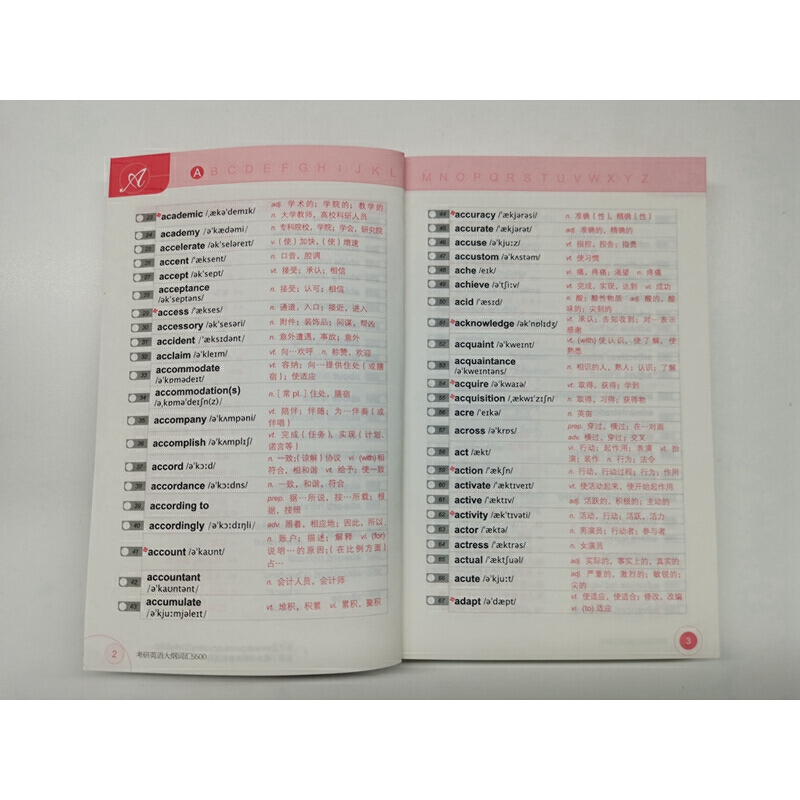 A
A B C D E F G H I J K L
23 academic /ˌækəˈdemɪk/ adj. 学术的；学院的；教学的
n. 大学教师，高校科研人员
24 academy /əˈkædəmi/ n. 专科院校，学院；学会，研究院
25 accelerate /əkˈseləreɪt/ v.(使)加快，(使)增速
26 accent /ˈæksent/ n. 口音，腔调
27 accept /əkˈsept/ vt. 接受；承认；相信
28 acceptance
/əkˈseptəns/ n. 接受；认可；相信
29 access /ˈækses/ n. 通道，入口；接近，进入
30 accessory /əkˈsesəri/ n. 附件；装饰品；同谋，帮凶
31 accident /ˈæksɪdənt/ n. 意外遭遇，事故；意外
32 acclaim /əˈkleɪm/ vt. 向…欢呼 n. 称赞，欢迎
33 accommodate
/əˈkɒmədeɪt/ vt. 容纳；向…提供住处(或膳
宿)；使适应
34 accommodation(s)
/əˌkɒməˈdeɪʃn(z)/ n.[常 pl.]住处，膳宿
35 accompany /əˈkʌmpəni/ vt. 陪伴；伴随；为…伴奏(或
伴唱)
36 accomplish /əˈkʌmplɪʃ/ vt. 完成(任务)，实现(计划、
诺言等)
37 accord /əˈkɔːd/ n. 一致；(谅解)协议 vi.(with)相
符合，相和谐 vt. 给予；使一致
38 accordance /əˈkɔːdns/ n. 一致，和谐，符合
39 according to prep. 据…所说，按…所载；根
据，按照
40 accordingly /əˈkɔːdɪŋli/ adv. 照着，相应地；因此，所以
41 account /əˈkaunt/ n. 账户；描述；解释 vi.(for)
说明…的原因；(在比例方面)
占…
42 accountant
/əˈkauntənt/ n. 会计人员，会计师
43 accumulate
/əˈkjuːmjəleɪt/ vt. 堆积，积累 vi. 累积，聚积
2 考研英语大纲词汇5500
M N O P Q R S T U V W X Y Z
44 accuracy /ˈækjərəsi/ n. 准确(性)，精确(性)
45 accurate /ˈækjərət/ adj. 准确的，精确的
46 accuse /əˈkjuːz/ vt. 指控，控告；指责
47 accustom /əˈkʌstəm/ vt. 使习惯
48 ache /eɪk/ vi. 痛，疼痛；渴望 n. 疼痛
49 achieve /əˈtʃiːv/ vt. 完成，实现，达到 vi. 成功
50 acid /ˈæsɪd/ n. 酸；酸性物质 adj. 酸的，酸
味的；尖刻的
51 acknowledge /əkˈnɒlɪdʒ/ vt. 承认；告知收到；对…表示
感谢
52 acquaint /əˈkweɪnt/ vt.(with)使认识，使了解，使
熟悉
53 acquaintance
/əˈkweɪntəns/ n. 相识的人，熟人；认识；了解
54 acquire /əˈkwaɪə/ vt. 取得，获得；学到
55 acquisition /ˌækwɪˈzɪʃn/ n. 取得，习得；获得物
56 acre /ˈeɪkə/ n. 英亩
57 across /əˈkrɒs/ prep. 穿过，横过；在…对面
adv. 横过，穿过；交叉
58 act /ækt/ vi. 行动；起作用；表演 vt. 扮
演；装作 n. 行为；法令
59 action /ˈækʃn/ n. 行动，行动过程；行为；作用
60 activate /ˈæktɪveɪt/ vt. 使活动起来，使开始起作用
61 active /ˈæktɪv/ adj. 活跃的，积极的；主动的
62 activity /ækˈtɪvəti/ n. 活动，行动；活跃，活力
63 actor /ˈæktə/ n. 男演员；行动者；参与者
64 actress /ˈæktrəs/ n. 女演员
65 actual /ˈæktʃuəl/ adj. 实际的，事实上的，真实的
66 acute /əˈkjuːt/ adj. 严重的，激烈的；敏锐的；
尖的
67 adapt /əˈdæpt/ vt. 使适应，使适合；修改，改编
vi.(to)适应
3